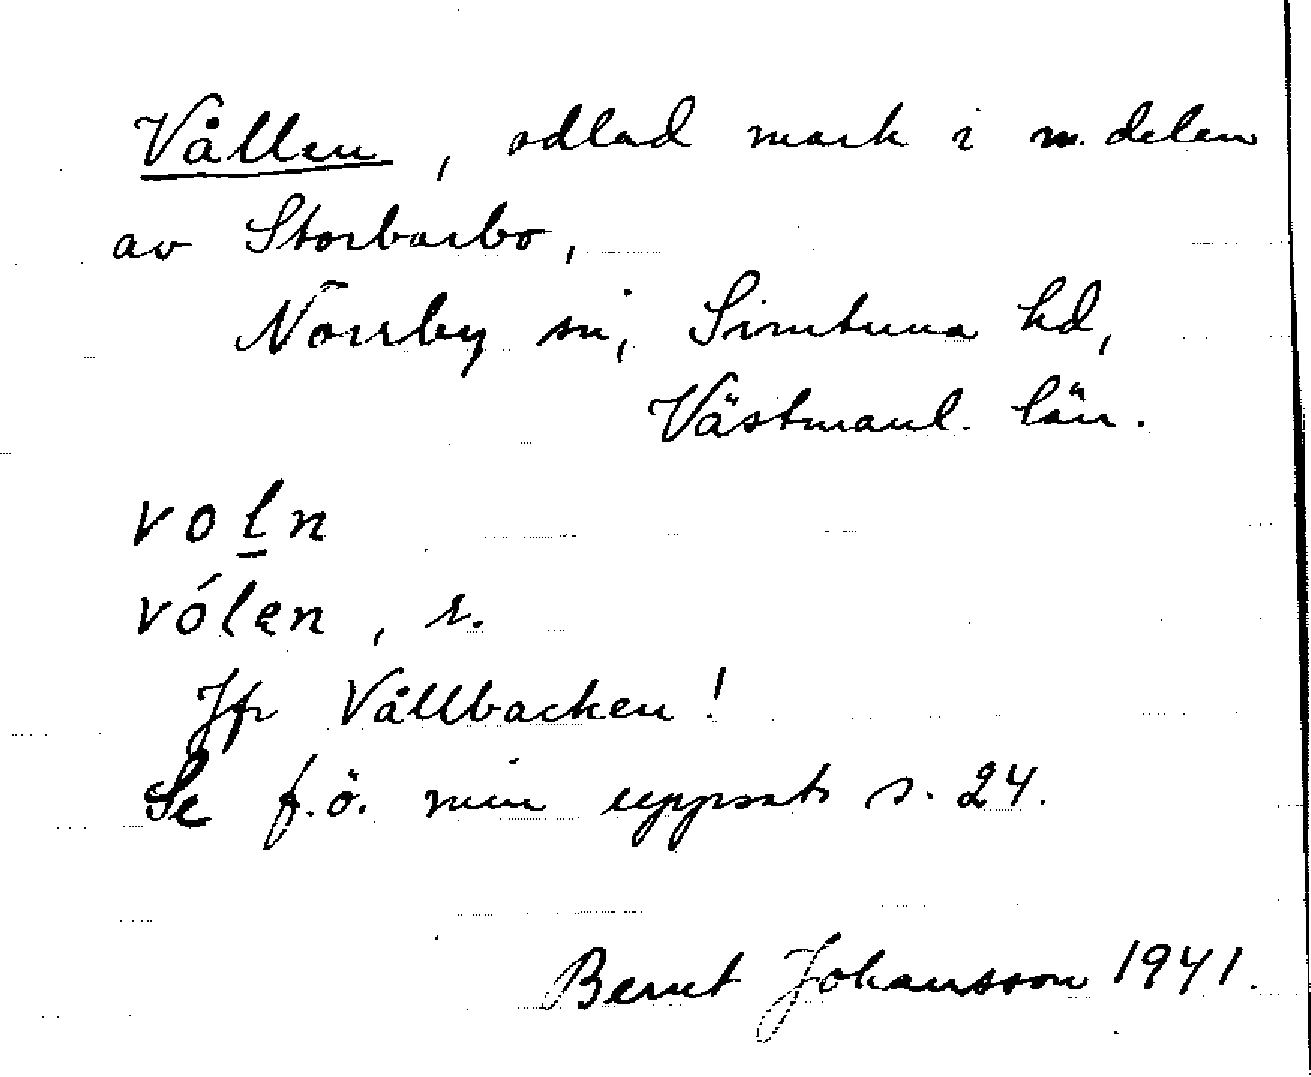 Vållen, odlad mark i n. delen
av Storbarbo,
Norrby sn, Simtuna hd,
Västmanl. län.
voln
vólen, r.
Jfr Vållbacken!
Se f.ö. min uppsats s. 24.
Bernt Johansson 1941.